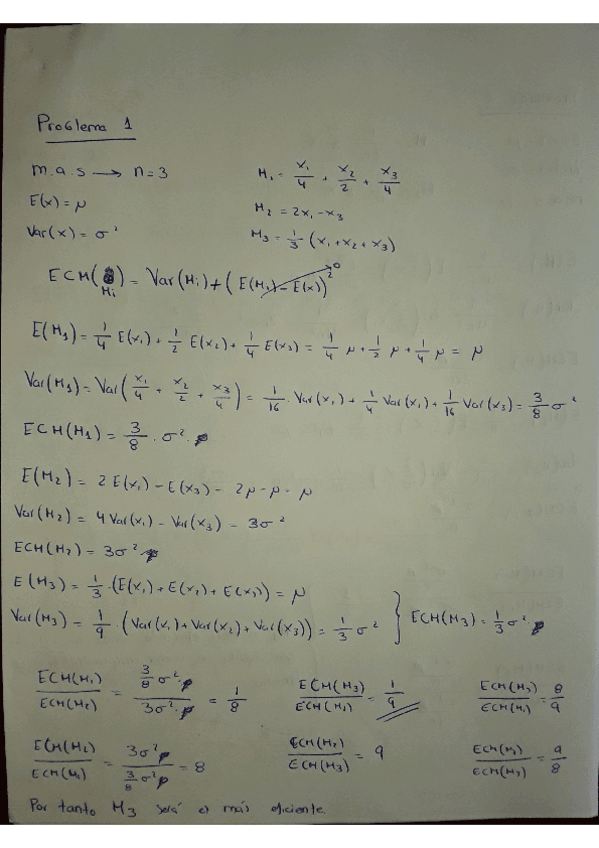 Problema 1
m.a.s → n=3
M₁ = x₁/4 + x₂/2 + x₃/4
E(x) = μ
M₂ = 2x₁ - x₃
Var(x) = σ²
M₃ = 1/3 (x₁+x₂+x₃)
ECM( ) = Var(Mi) + (E(Mi) - E(x))² → 0
Mi
E(M₁) = 1/4 E(x₁) + 1/2 E(x₂) + 1/4 E(x₃) = 1/4 μ + 1/2 μ + 1/4 μ = μ
Var(M₁) = Var(x₁/4 + x₂/2 + x₃/4) = 1/16 · Var(x₁) + 1/4 Var(x₁) + 1/16 Var(x₃) = 3/8 σ²
ECM(M₁) = 3/8 · σ² ·
E(M₂) = 2 E(x₁) - E(x₃) - 2μ - μ - μ
Var(M₂) = 4Var(x₁) - Var(x₃) - 3σ²
ECM(M₂) = 3σ²
E(M₃) = 1/3 · (E(x₁) + E(x₁) + E(x₃)) = μ
Var(M₃) = 1/9 · (Var(x₁) + Var(x₂) + Var(x₃)) = 1/3 σ² } ECM(M₃) = 1/3 σ²
ECM(M₁)/ECM(M₂) = 3/8 σ² · / 3σ² · = 1/8 ECM(M₃)/ECM(M₂) = 1/9 ECM(M₃)/ECM(M₁) = 8/9
ECM(M₂)/ECM(M₁) = 3σ² / 3/8 σ² = 8 ECM(M₂)/ECM(M₃) = 9 ECM(M₁)/ECM(M₃) = 9/8
Por tanto M₃ será el más eficiente.